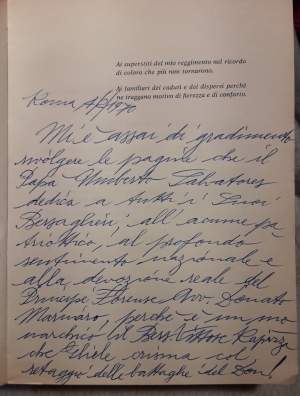 Ai superstiti del mio reggimento nel ricordo
di coloro che più non tornarono.
Ai familiari dei caduti e dei dispersi perché
ne traggano motivo di fierezza e di conforto.
Roma 1970
Mi è assai di gradimento
svolgere le pagine che il
Papà Umberto Salvatores
dedica a tutti i Suoi
Bersaglieri, all'acume pa
triottico, al profondo
sentimento nazionale e
alla devozione reale del
Principe Forense Avv. Donato
Marinaro, perchè è un mo
narchico il Bers. Vittore
che Gliele col
retaggio delle battaglie del Don!